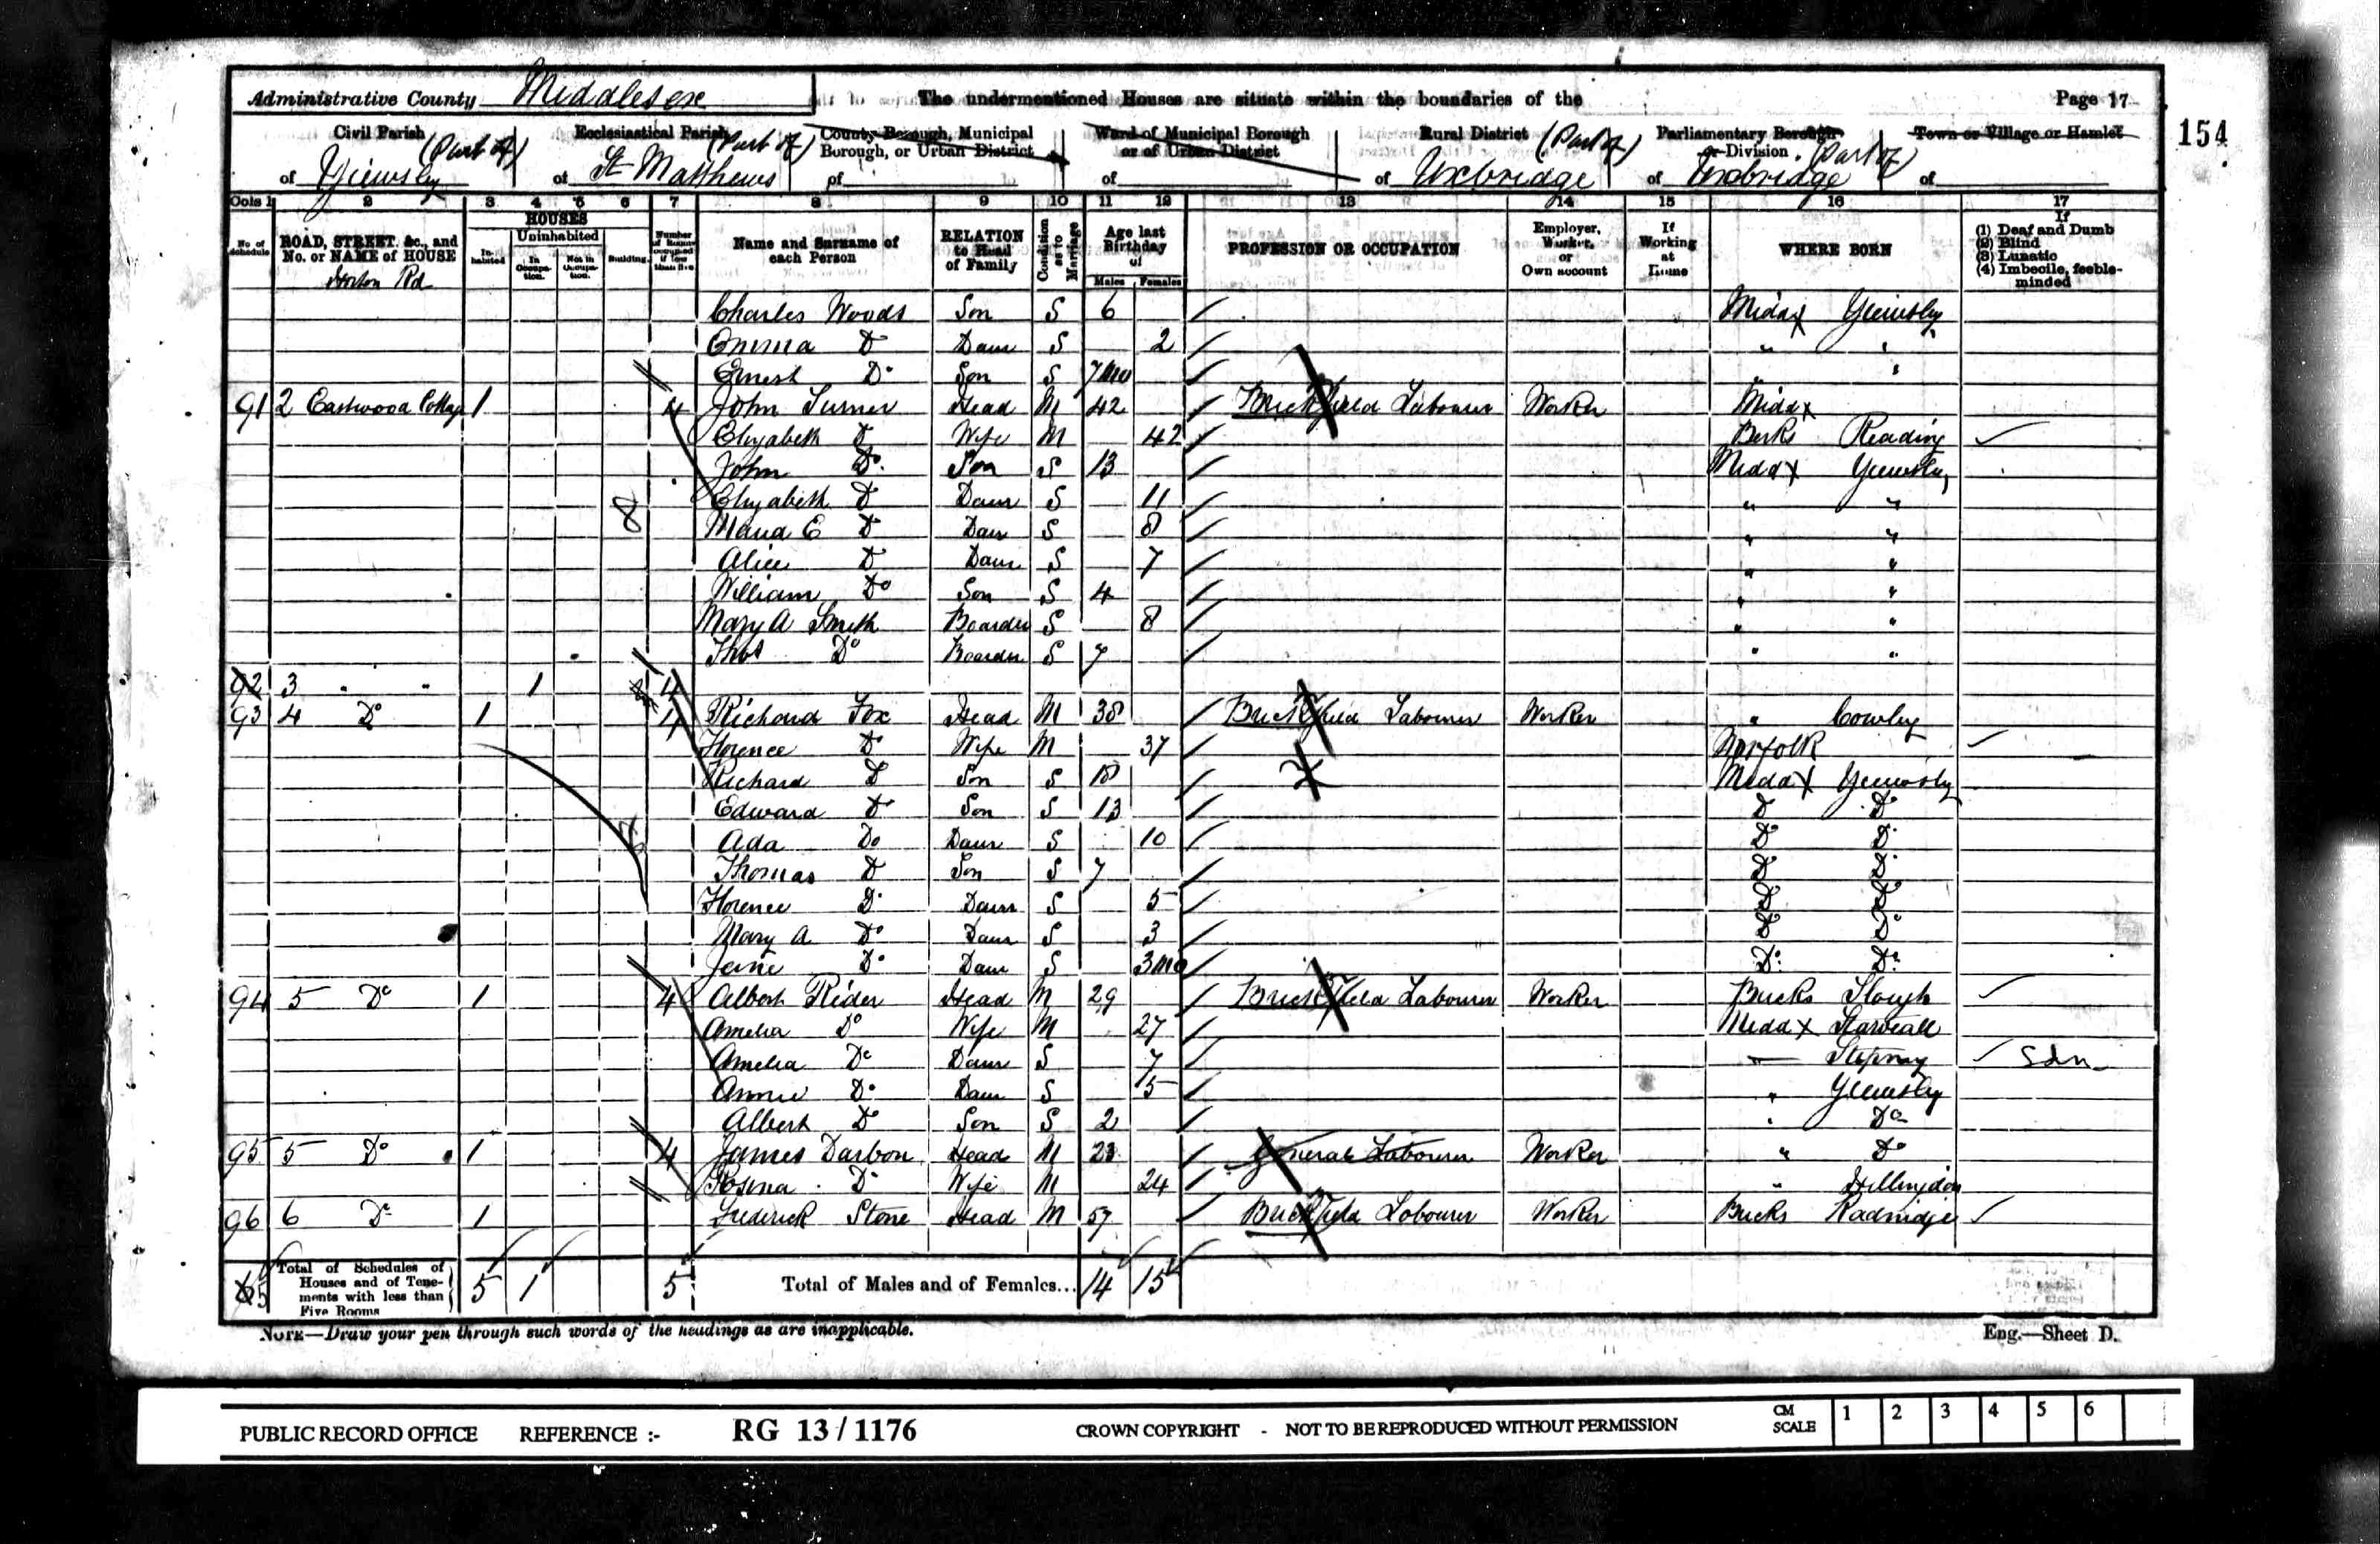 Administrative County Middlesex The undermentioned Houses are situate within the boundaries of the Page 17
154
Civil Parish (Part of) of Yiewsley
Ecclesiastical Parish (Part of) of St Matthews
County Borough, Municipal Borough, or Urban District of
Ward of Municipal Borough or of Urban District of
Rural District (Part of) of Uxbridge
Parliamentary Borough or Division (Part of) of Uxbridge
Town or Village or Hamlet of
Cols 1 2 3 4 5 6 7 8 9 10 11 12 13 14 15 16 17
No. of Schedule
ROAD, STREET, &c., and No. or NAME of HOUSE
HOUSES
Inhabited
Uninhabited
In Occupation.
Not in Occupation.
Building.
Number of Rooms occupied if less than five
Name and Surname of each Person
RELATION to Head of Family
Condition as to Marriage
Age last Birthday of
Males Females
PROFESSION OR OCCUPATION
Employer, Worker, or Own account
If Working at Home
WHERE BORN
If
(1) Deaf and Dumb
(2) Blind
(3) Lunatic
(4) Imbecile, feeble-minded
Horton Rd
Charles Woods Son S 6 Middx Yiewsley
Emma Do Daur S 2 " "
Ernest Do Son S 7mo " "
91 2 Eastwood Cottag 1 4 John Turner Head M 42 Brickfield Labourer Worker Middx
Elizabeth Do Wife M 42 Berks Reading
John Do Son S 13 Middx Yiewsley
Elizabeth Do Daur S 11 " "
8
Maria E Do Daur S 8 " "
Alice Do Daur S 7 " "
William Do Son S 4 " "
Mary A Smith Boarder S 8 " "
Thos Do Boarder S 7 " "
92 3 " " 1 4
93 4 Do 1 4 Richard Fox Head M 38 Brickfield Labourer Worker " Cowley
Florence Do Wife M 37 Norfolk
Richard Do Son S 18 Middx Yiewsley
Edward Do Son S 13 Do Do
Ada Do Daur S 10 Do Do
Thomas Do Son S 7 Do Do
Florence Do Daur S 5 Do Do
Mary A Do Daur S 3 Do Do
Jane Do Daur S 3mo Do Do
94 5 Do 1 4 Albert Rider Head M 29 Brickfield Labourer Worker Bucks Slough
Amelia Do Wife M 27 Middx Starveall
Amelia Do Daur S 7 " Stepney Sdn
Annie Do Daur S 5 " Yiewsley
Albert Do Son S 2 " Do
95 5 Do 1 4 James Darbon Head M 23 General Labourer Worker " Do
Rosina Do Wife M 24 " Hillingdon
96 6 Do 1 Frederick Stone Head M 57 Brickfield Labourer Worker Bucks Radnidge
5 Total of Schedules of Houses and of Tenements with less than Five Rooms 5 1 5 Total of Males and of Females... 14 15
NOTE—Draw your pen through such words of the headings as are inapplicable.
Eng.—Sheet D.
PUBLIC RECORD OFFICE REFERENCE :- RG 13/1176 CROWN COPYRIGHT - NOT TO BE REPRODUCED WITHOUT PERMISSION
CM SCALE 1 2 3 4 5 6